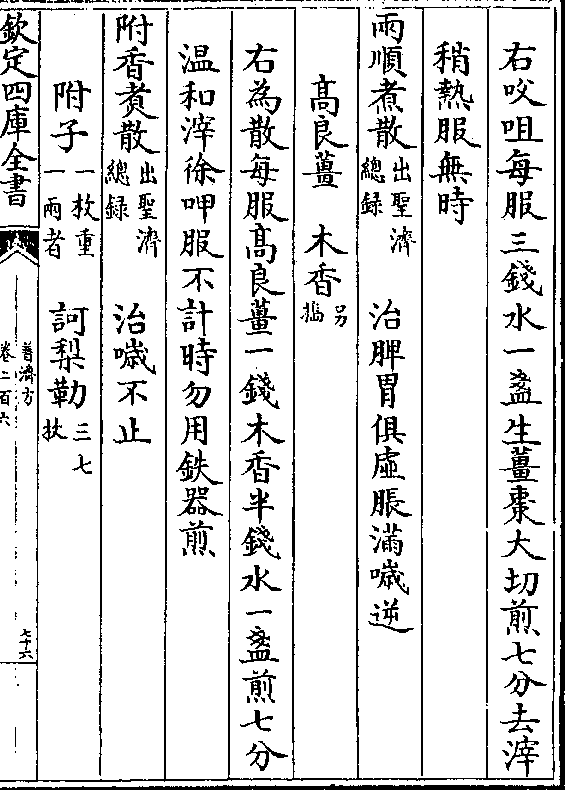 右㕮咀每服三錢水一盞生薑棗大切煎七分去滓
稍熱服無時
兩順煮散出聖濟總録 治脾胃俱虛脹滿噦逆
髙良薑 木香另搗
右為散每服髙良薑一錢木香半錢水一盞煎七分
温和滓徐呷服不計時勿用鉄器煎
附香煑散出聖濟總録 治噦不止
附子一枚重一兩者 訶梨勒三七枚
欽定四庫全書
普濟方
卷二百六
七十六